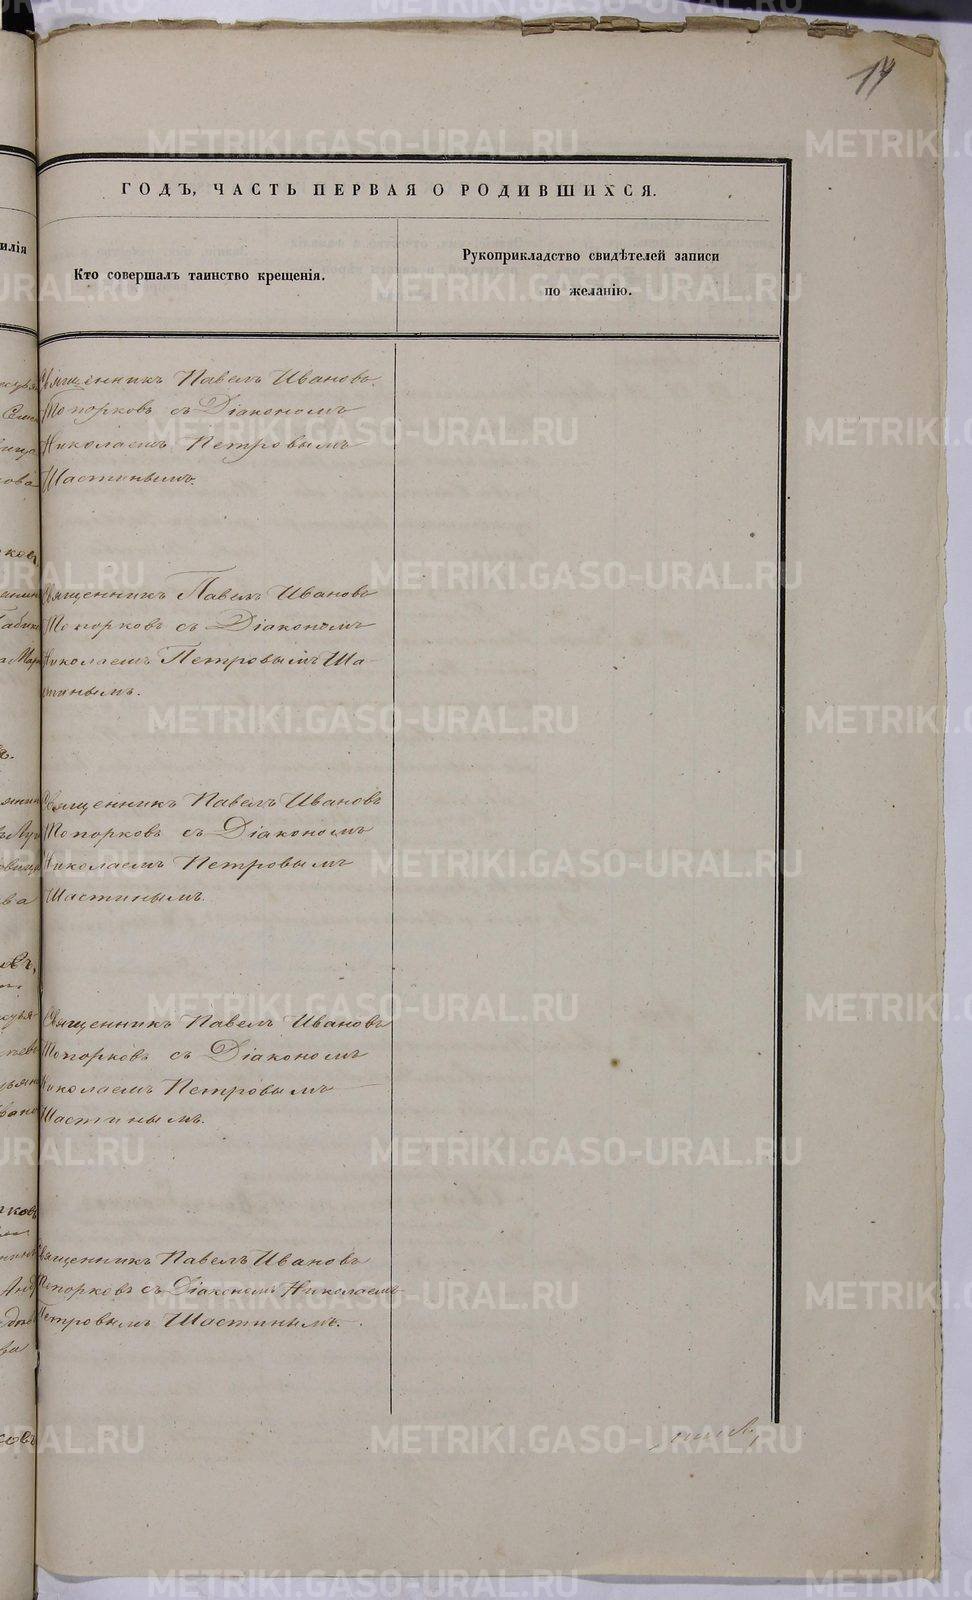 14
ГОДЪ, ЧАСТЬ ПЕРВАЯ О РОДИВШИХСЯ.
илія
Кто совершалъ таинство крещенія.
Рукоприкладство свидѣтелей записи
по желанію.
Священникъ Павелъ Ивановъ
Топорковъ съ Діакономъ
Николаемъ Петровымъ
Шастинымъ.
Священникъ Павелъ Ивановъ
Топорковъ съ Діакономъ
Николаемъ Петровымъ Ша-
стинымъ.
Священникъ Павелъ Ивановъ
Топорковъ съ Діакономъ
Николаемъ Петровымъ
Шастинымъ.
Священникъ Павелъ Ивановъ
Топорковъ съ Діакономъ
Николаемъ Петровымъ
Шастинымъ.
Священникъ Павелъ Ивановъ
Топорковъ съ Діакономъ Николаемъ
Петровымъ Шастинымъ.
METRIKI.GASO-URAL.RU